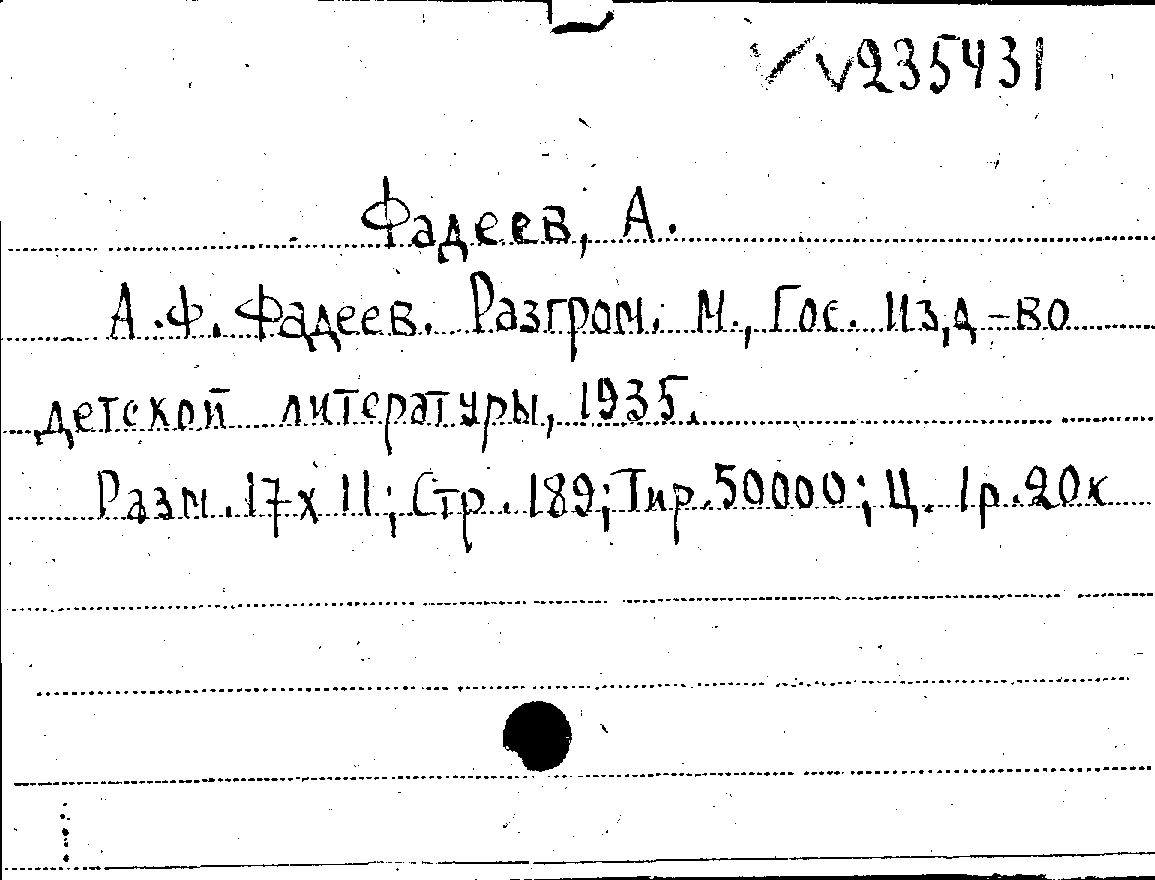 V235431
Фадеев, А.
А.Ф. Фадеев. Разгром. М., Гос. Изд-во
детской литературы, 1935.
Разм. 17х11; Стр. 189; Тир. 50000; Ц. 1р.20к